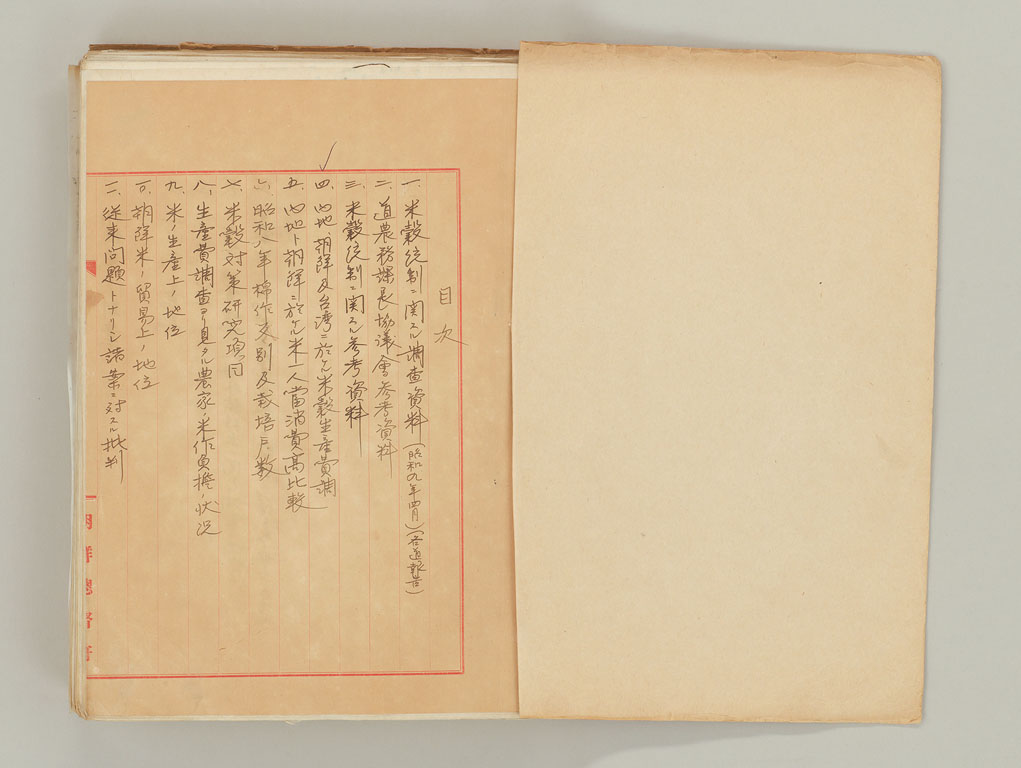 目次
一、米穀統制ニ関スル調査資料(昭和九年四月)(各道報告)
二、道農務課長協議會参考資料
三、米穀統制ニ関スル参考資料
四、内地、朝鮮及台湾ニ於ケル米穀生産費調
五、内地ト朝鮮ニ於ケル米一人當消費高比較
六、昭和八年棉作支別及栽培戸数
七、米穀対策研究項目
八、生産費調査ヨリ見タル農家ノ米作負擔ノ状況
九、米ノ生産上ノ地位
一〇、朝鮮米ノ貿易上ノ地位
一一、従来問題トナリシ諸案ニ対スル批判
朝鮮總督府